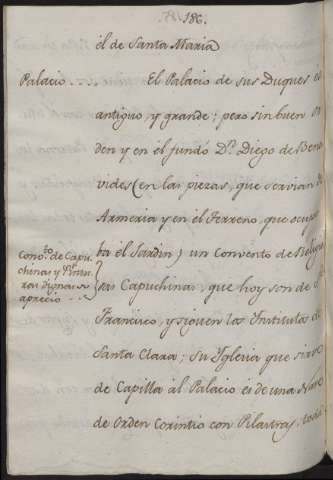 186.
él de Santa Maria
Palacio . . . El Palacio de sus Duques es
antiguo, y grande; pero sin buen or
den y en él fundó Dⁿ. Diego de Bena
vides (en las piezas, que servian de
Armeria y en él Terreno, que ocupa
ba él Jardin) un convento de Religio
sas Capuchinas, que hoy son de Sⁿ.
Francisco, y siguen las Institutas de
Santa Clara; su Iglesia que sirve
de Capilla al Palacio es de una Nave
de Orden Corintio con Pilastras, toda
Convto. de Capu-
chinas y Pintu-
ras dignas de
aprecio . .